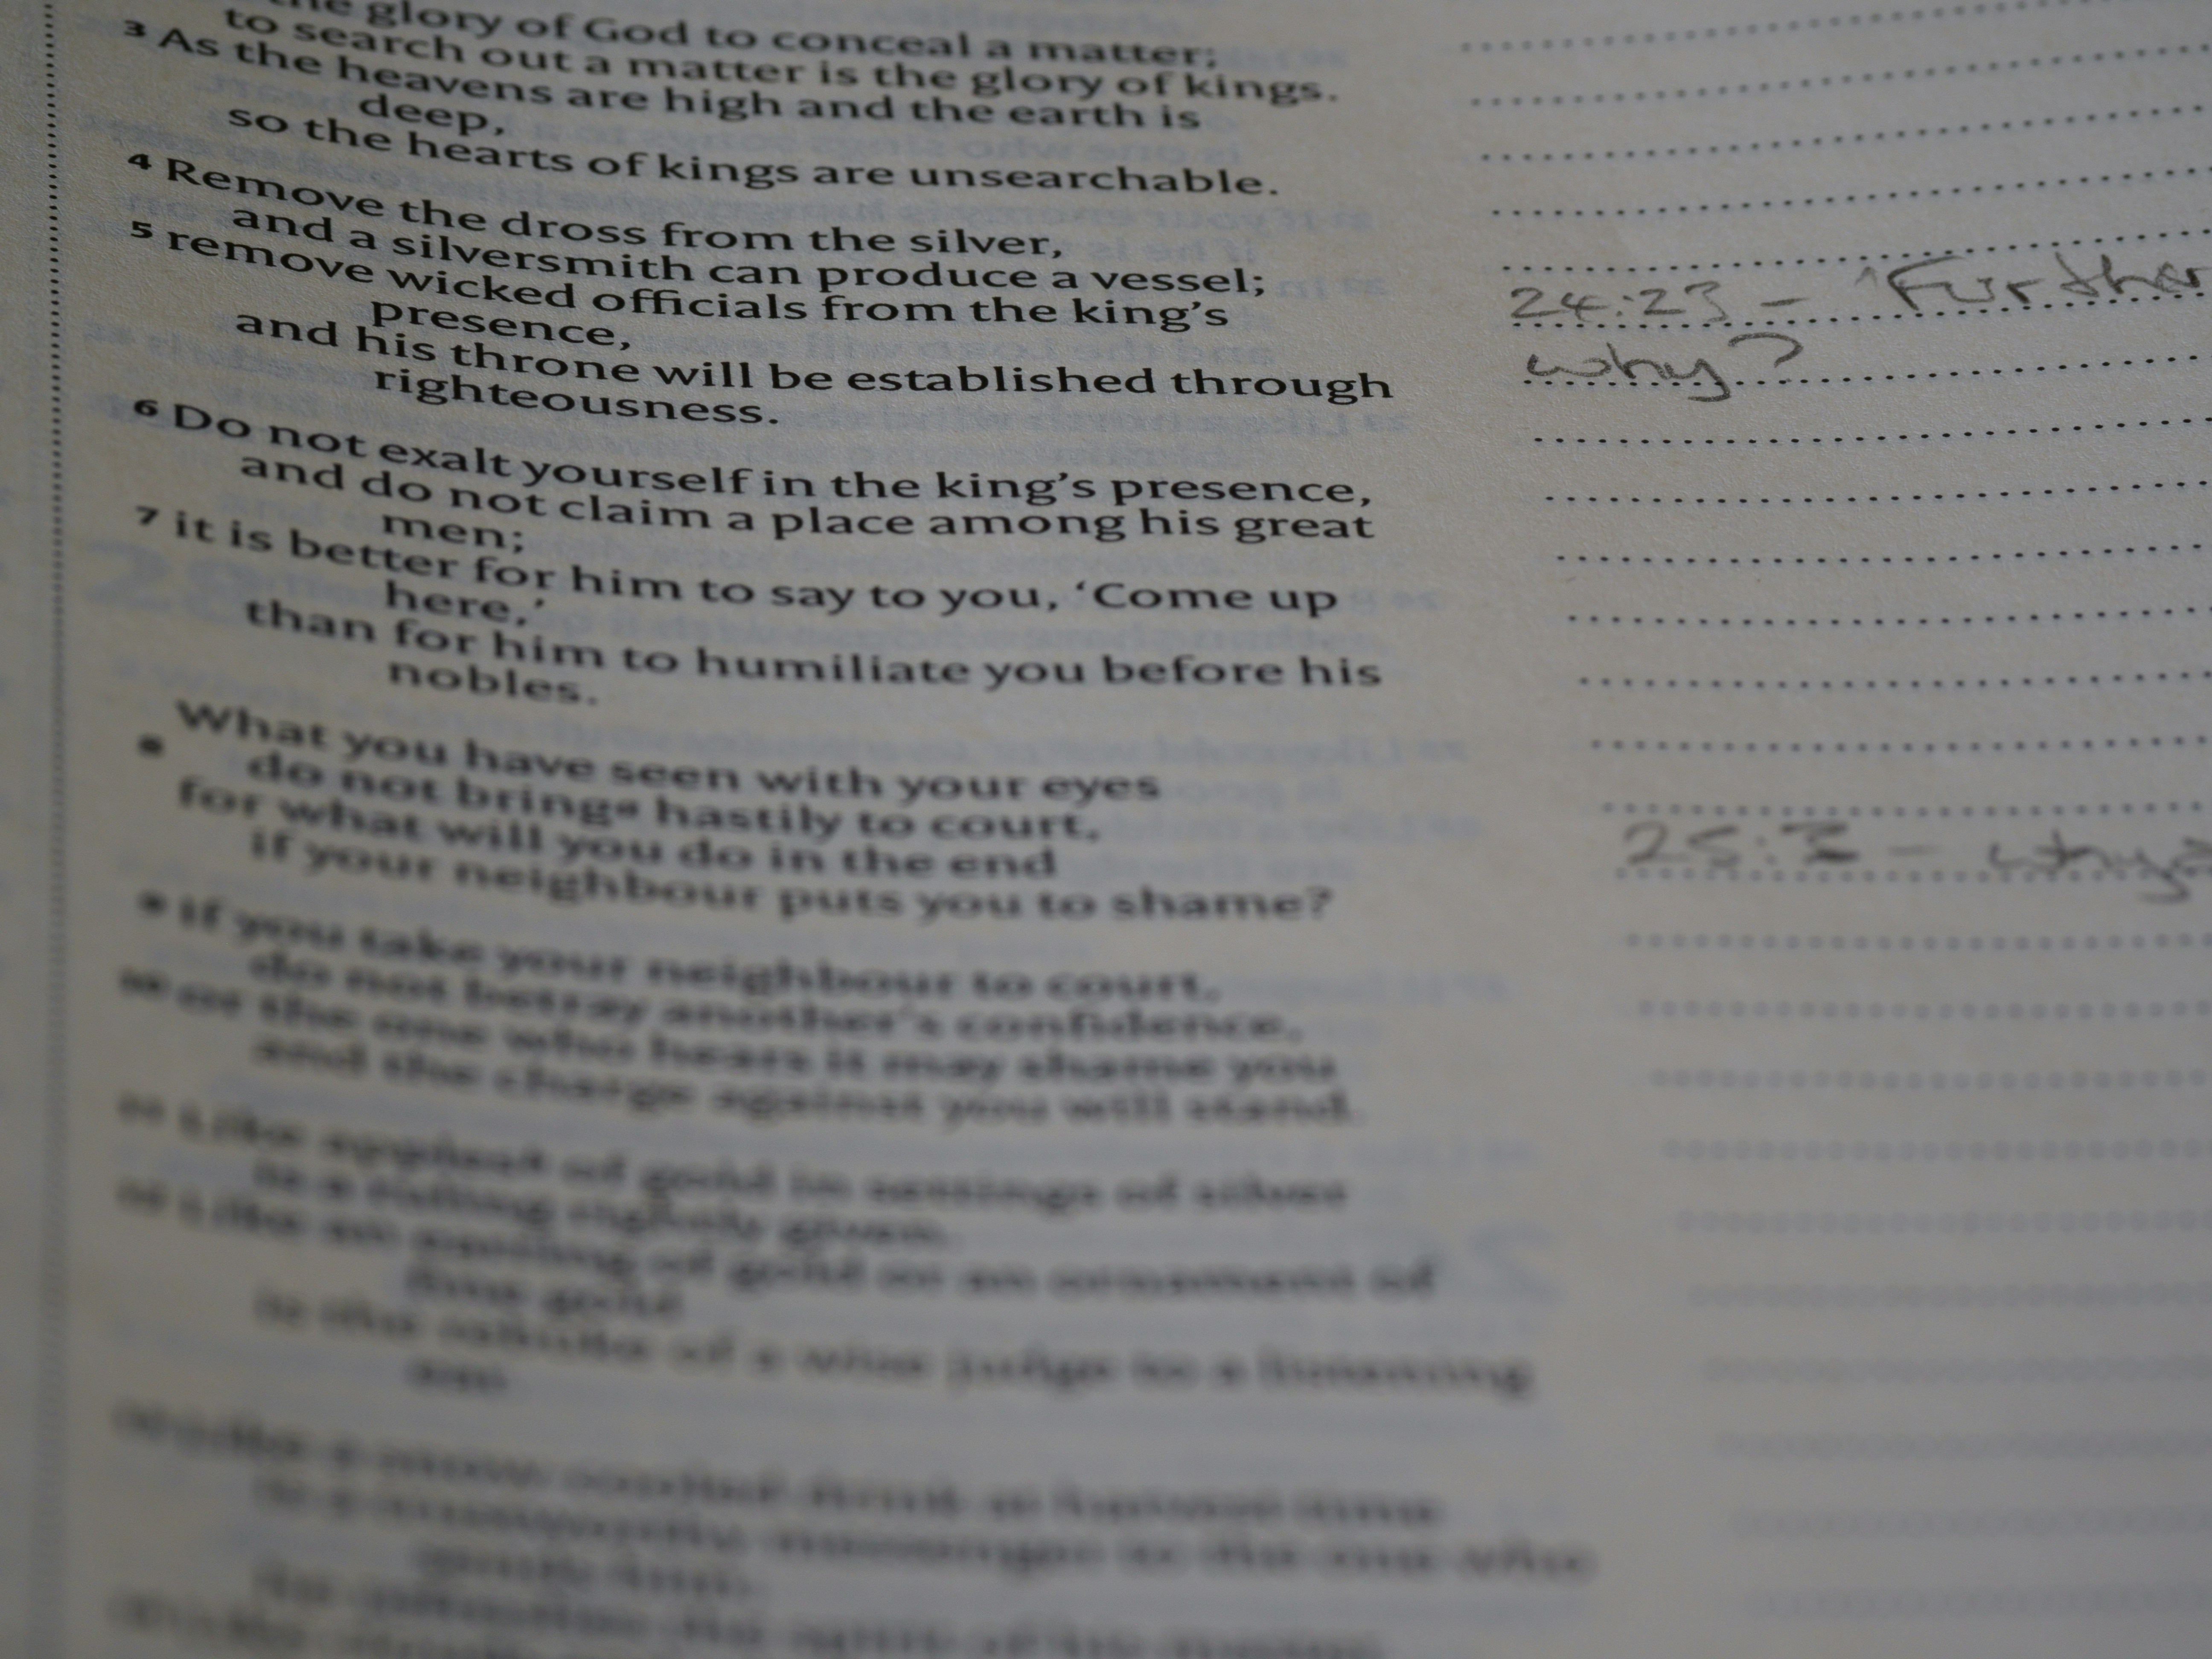 the glory of God to conceal a matter;
to search out a matter is the glory of kings.
3 As the heavens are high and the earth is
deep,
so the hearts of kings are unsearchable.
4 Remove the dross from the silver,
and a silversmith can produce a vessel;
5 remove wicked officials from the king’s
presence,
and his throne will be established through
righteousness.
6 Do not exalt yourself in the king’s presence,
and do not claim a place among his great
men;
7 it is better for him to say to you, ‘Come up
here,’
than for him to humiliate you before his
nobles.
What you have seen with your eyes
8 do not bring hastily to court,
for what will you do in the end
if your neighbour puts you to shame?
9 If you take your neighbour to court,
do not betray another’s confidence,
10 or the one who hears it may shame you
and the charge against you will stand.
11 Like apples of gold in settings of silver
is a ruling rightly given.
12 Like an earring of gold or an ornament of
fine gold
is the rebuke of a wise judge to a listening
ear.
24:23 - Further
why?
25: - why?